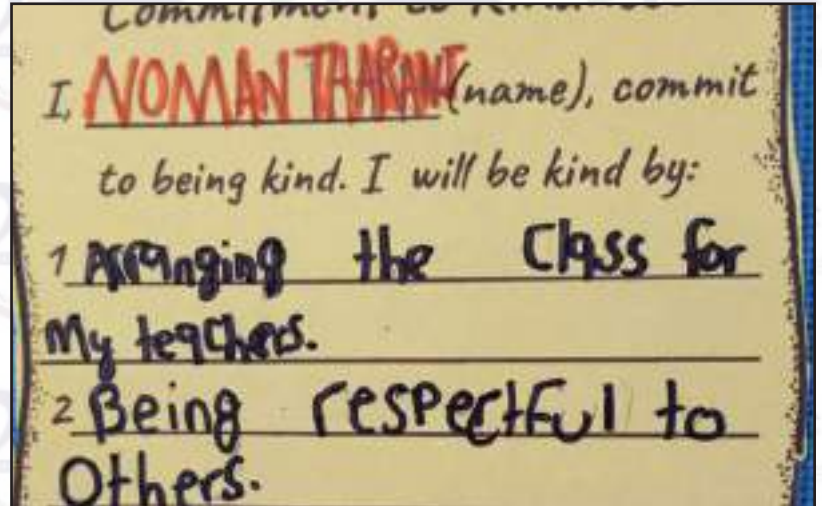 Commitment to Kindness
I, NOMAN THARANI (name), commit
to being kind. I will be kind by:
1 Arranging the Class for
My teachers.
2 Being respectful to
Others.